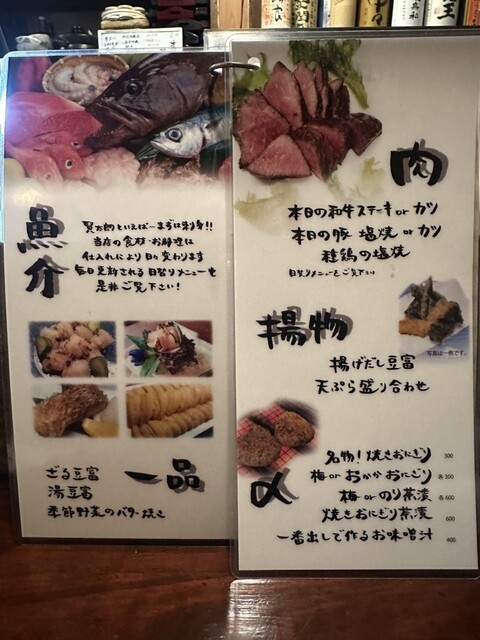 魚介
貝太郎といえば〜まずは刺身!!
当店の食材・お料理は
仕入れにより日々変わります
毎日更新される日替りメニューを
是非ご覧下さい!
一品
ざる豆富
湯豆富
季節野菜のバター焼き
肉
本日の和牛ステーキ or カツ
本日の豚 塩焼 or カツ
種鶏の塩焼
日替りメニューをご覧下さい
揚物
写真は一例です。
揚げだし豆富
天ぷら盛り合わせ
〆
名物! 焼きおにぎり 300
梅 or おかか おにぎり 各300
梅 or のり茶漬 各600
焼きおにぎり茶漬 600
一番出しで作るお味噌汁 400